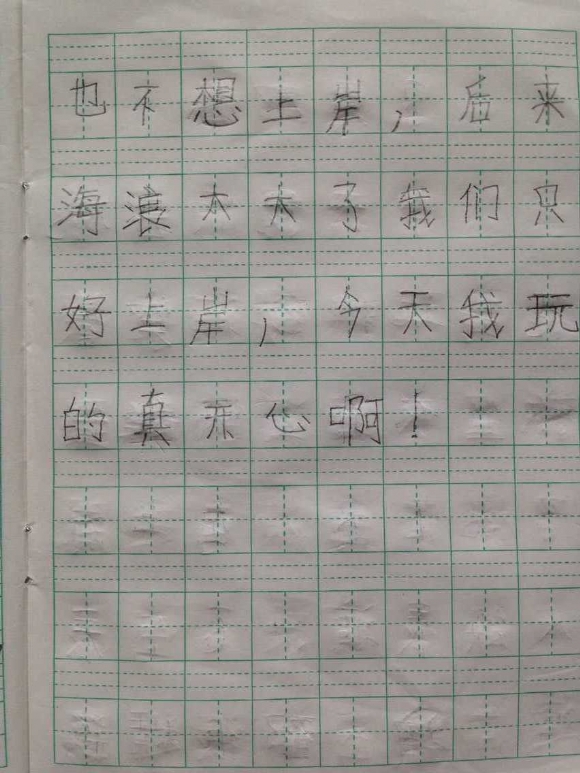 也不想上岸，后来
海滚大大了我们只
好上岸，今天我玩
的真开心啊！